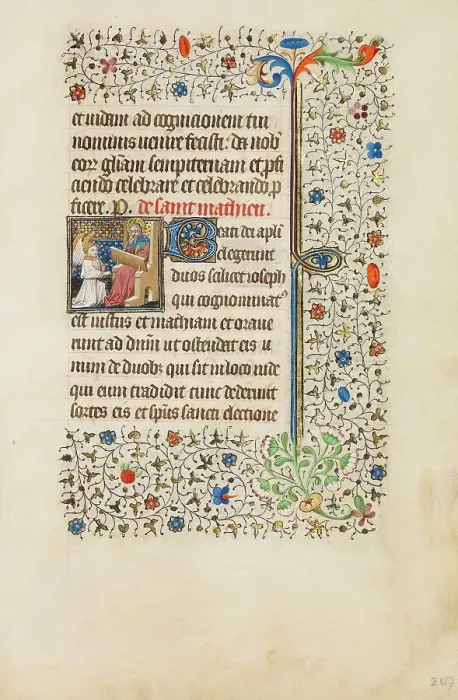 et iudam ad cognicionem tui
nominis venire fecisti: da nob'
eorz gl̃iam sempiternam et p̱fi
ciendo celebrare et celebrando p̱
ficere. P. de saint mathieu.
Beati dei apl̃i
elegerunt
duos scilicet ioseph
qui cognominat'
est iustus et mathiam et oraue
runt ad dñm ut ostendat eis u
num de duobz qui sit in loco iude
qui eum tradidit tunc dederunt
sortes eis et sp̃us sancti electione
267